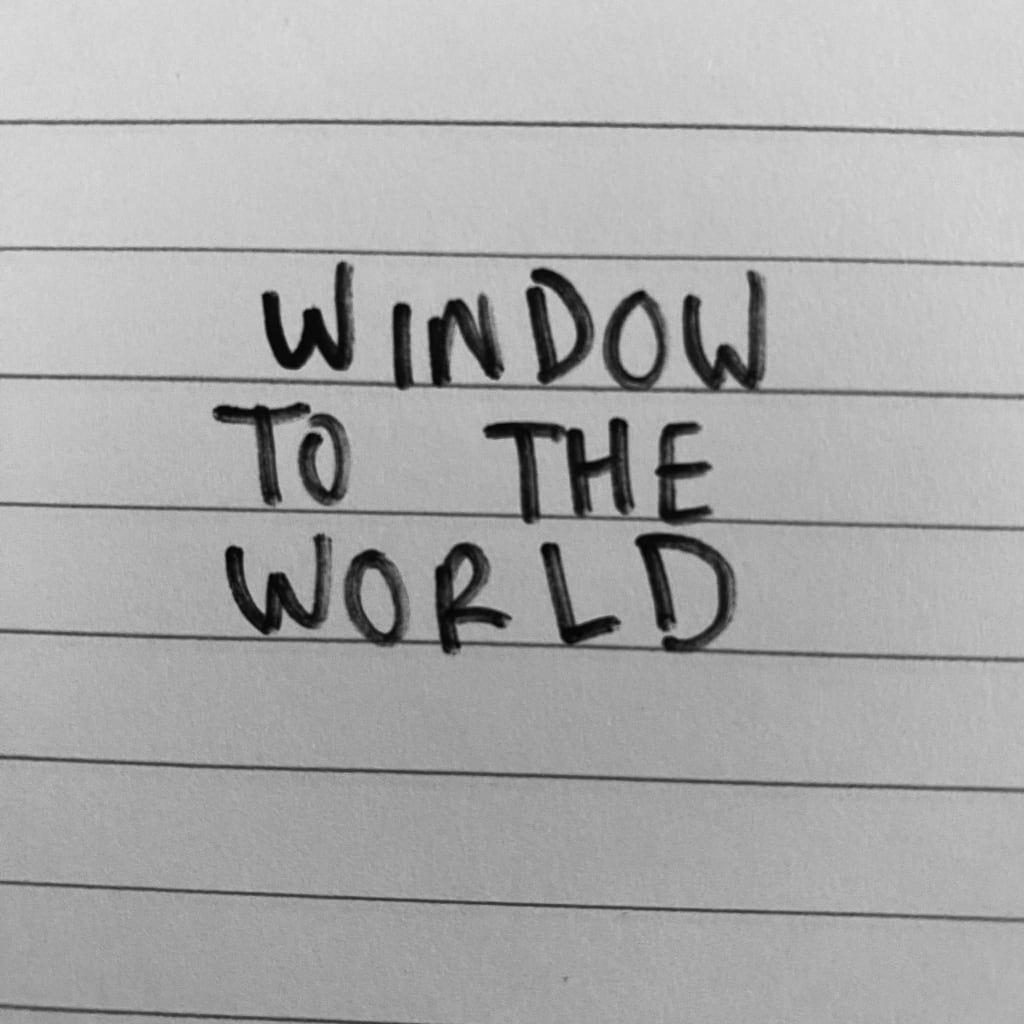 WINDOW
TO THE
WORLD